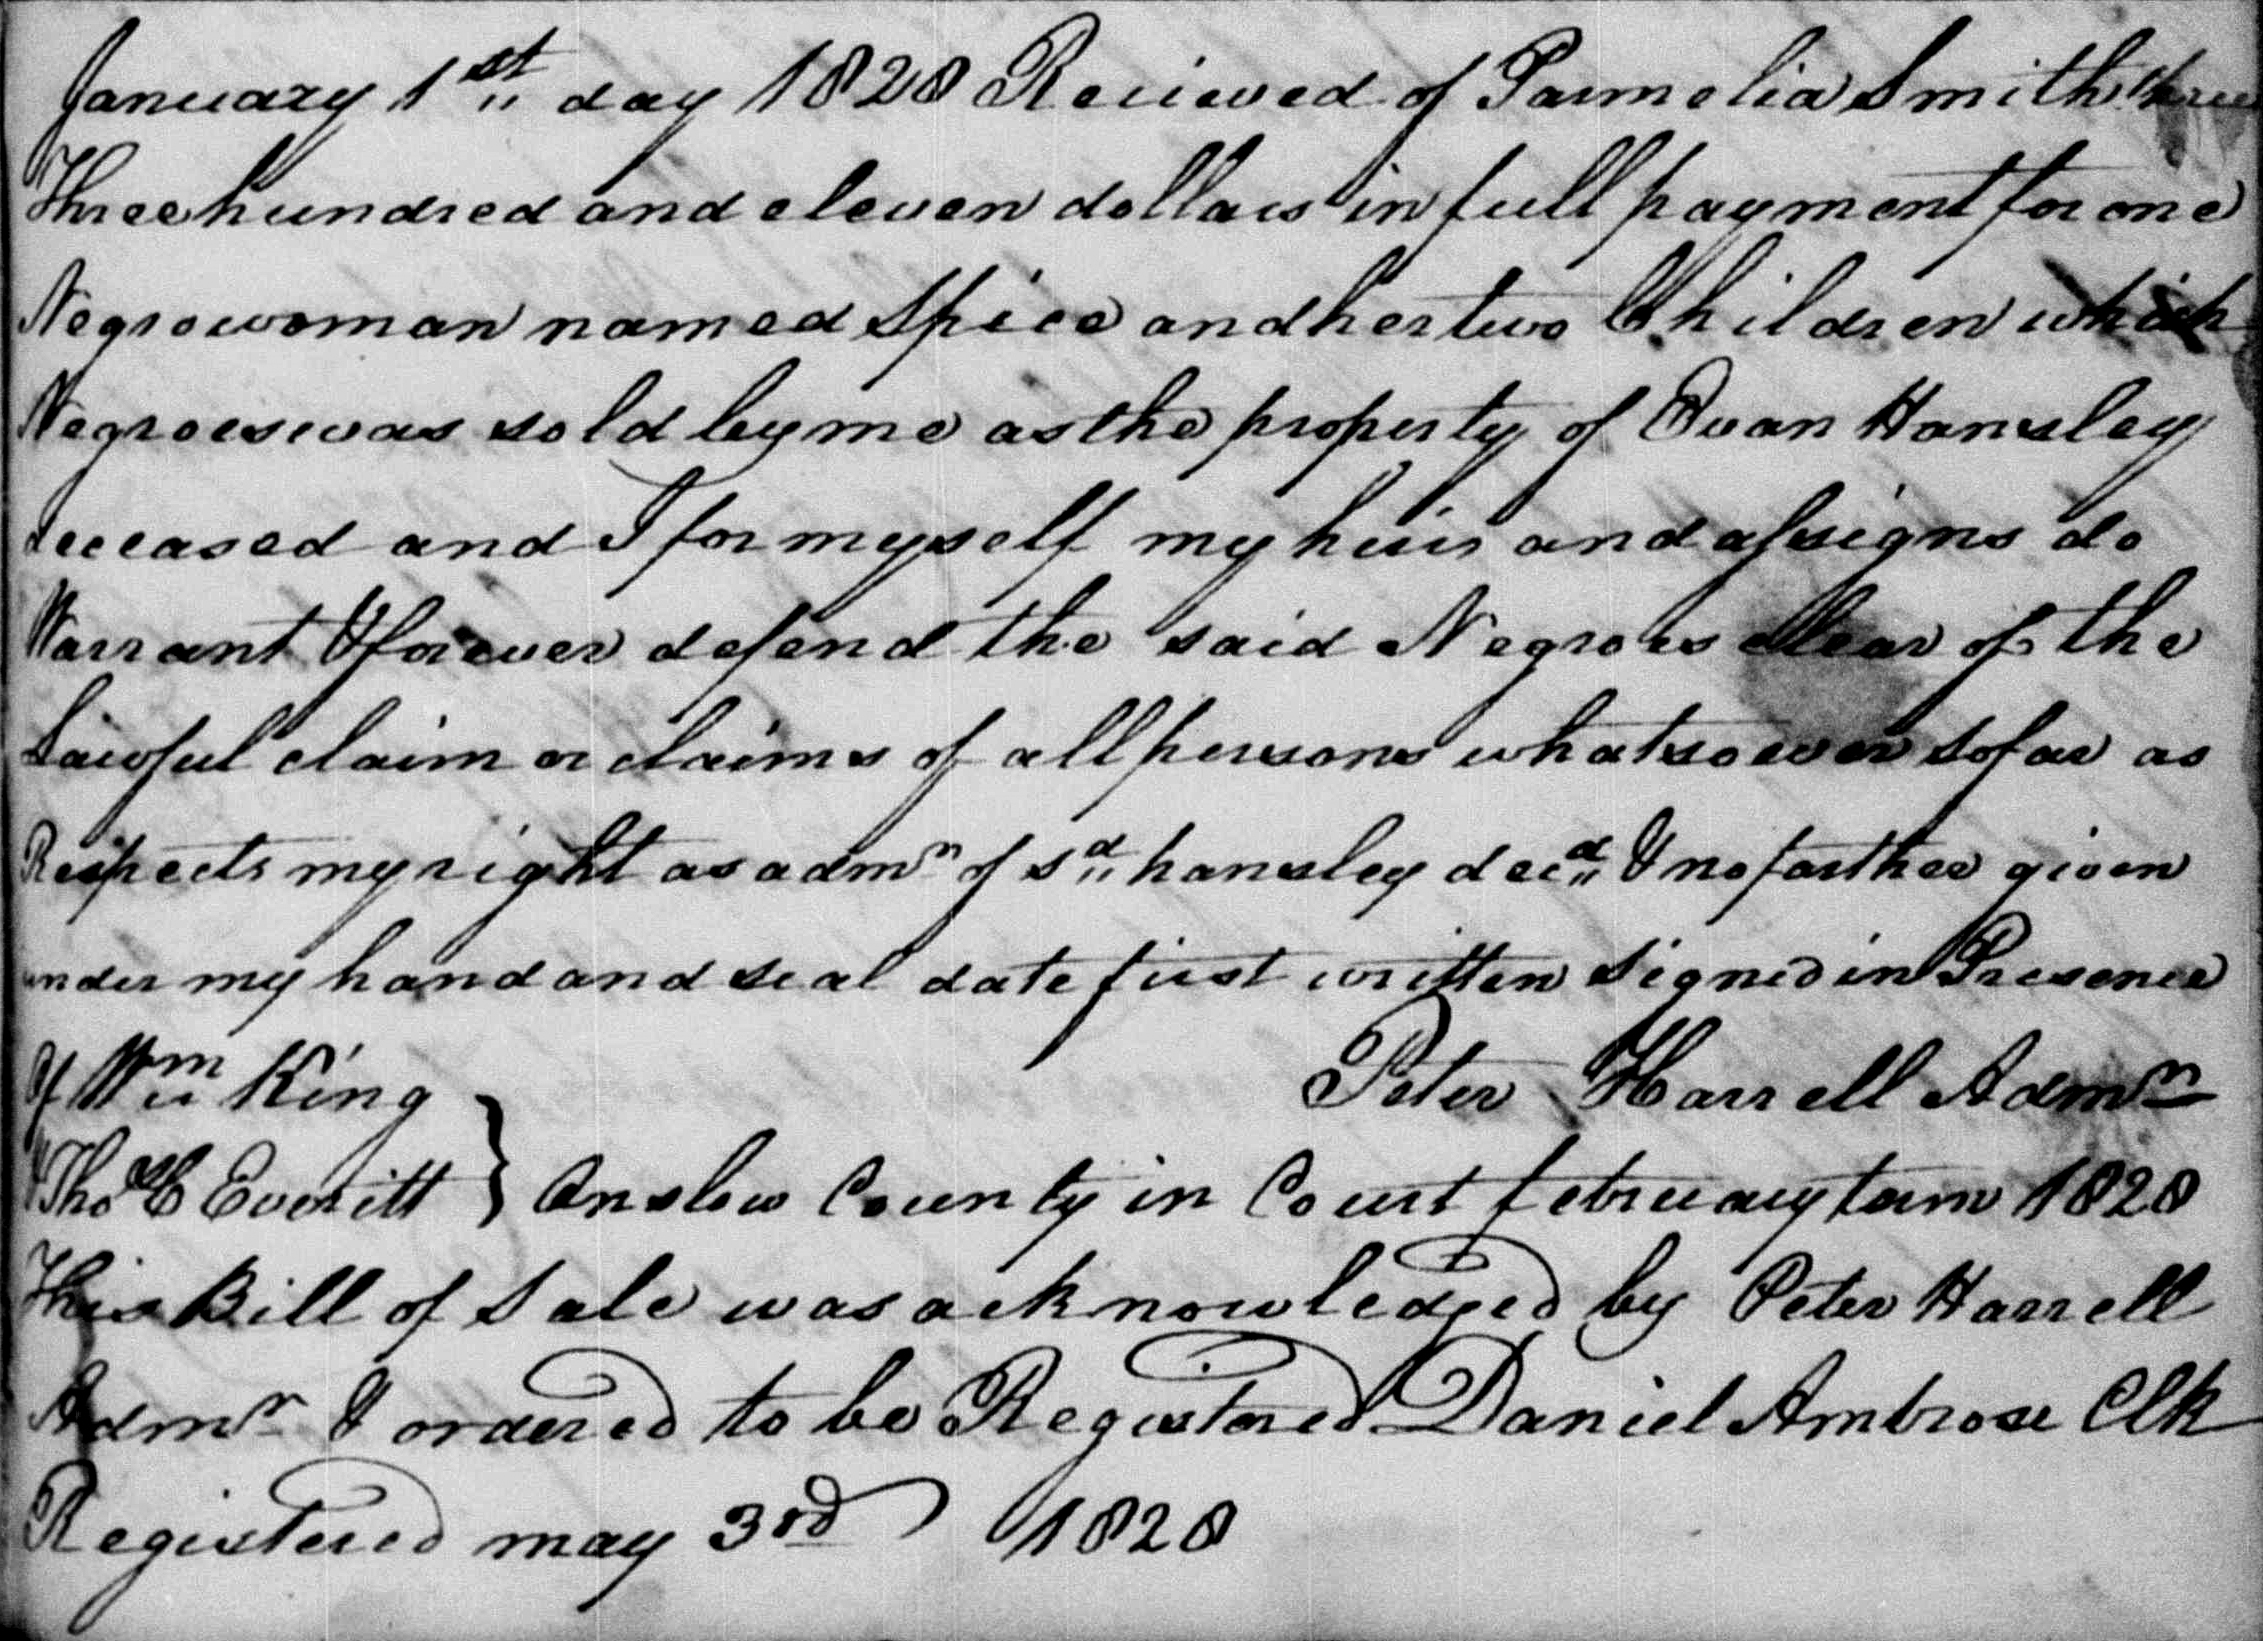 January 1st day 1828 Reciewed of Parmelia Smith three
Three hundred and eleven dollars in full payment for one
Negro woman named Spice and her two Children which
Negroes was sold by me as the property of Evan Hansley
deceased and I for myself my heirs and assigns do
Warrant & forever defend the said Negroes Clear of the
Lawful claim or claims of all persons whatsoever so far as
Respects my right as admr of sd hansley decd & no farther given
under my hand and seal date first written Signed in Presence
Of Wm King Peter Harrell Admr
Thos E Everitt } Onslow County in Court february term 1828
This Bill of Sale was acknowledged by Peter Harrell
Admr & ordered to be Registered Daniel Ambrose Clk
Registered may 3rd 1828